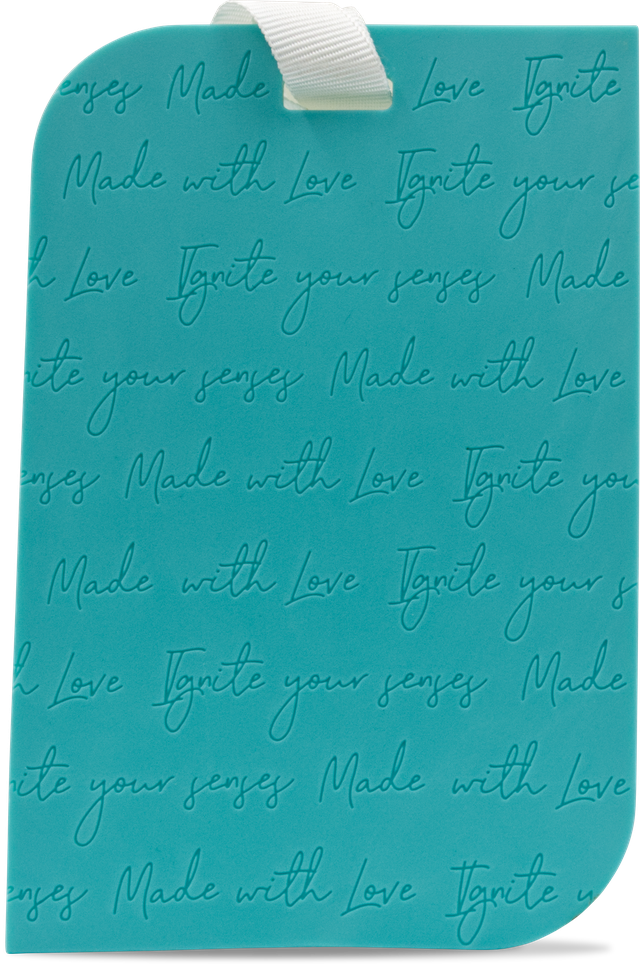 enses Made Love Ignite
Made with Love Ignite your se
h Love Ignite your senses Made
nite your senses Made with Love
enses Made with Love Ignite you
Made with Love Ignite your s
h Love Ignite your senses Made
nite your senses Made with Love
enses Made with Love Ignite u